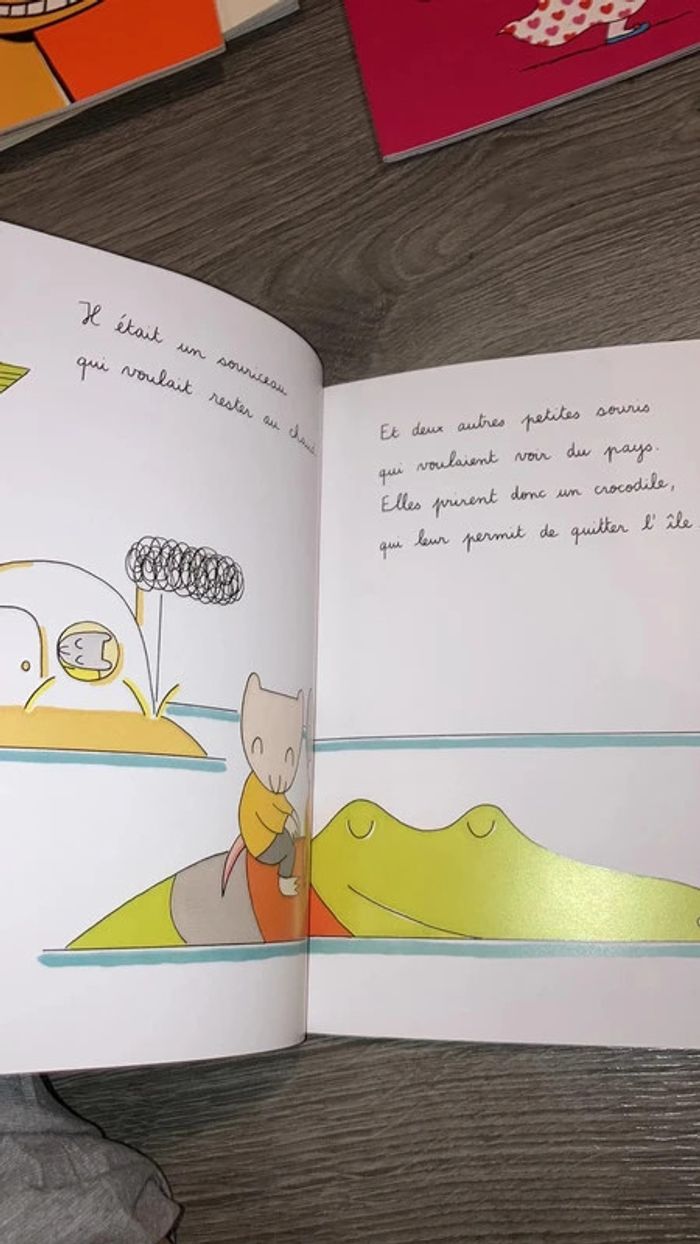 Il était un souriceau
qui voulait rester au chaud
Et deux autres petites souris
qui voulaient voir du pays.
Elles prirent donc un crocodile,
qui leur permit de quitter l'île